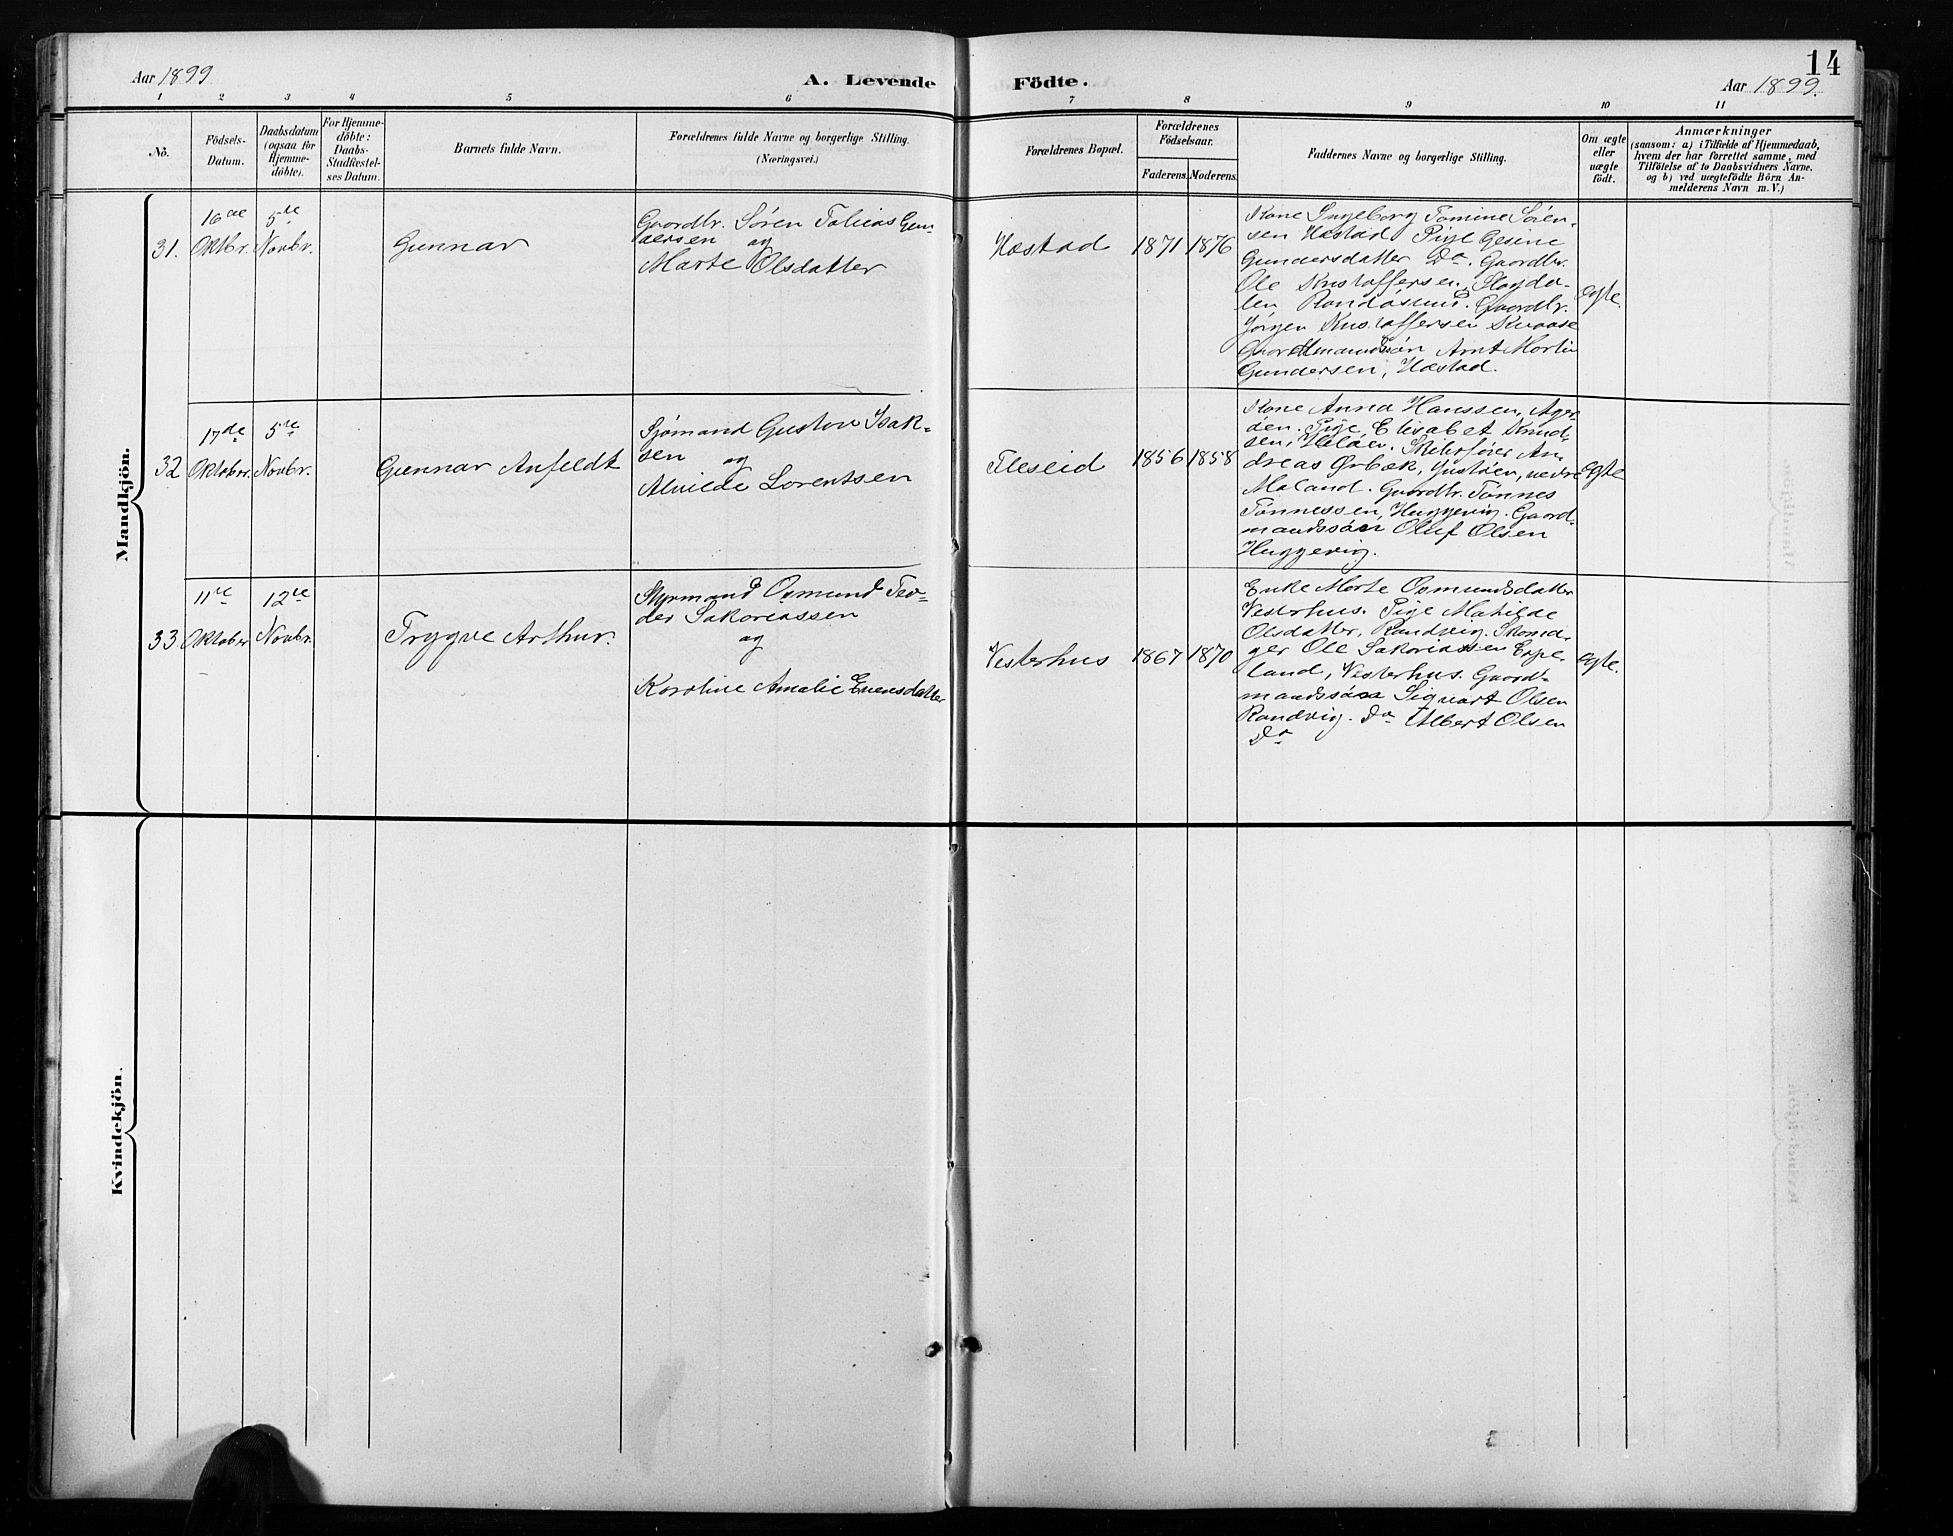 14
Aar 1899
A. Levende
Födte.
Aar 1899.
1 2 3 4 5 6 7 8 9 10 11
No.
Födsels-
Datum.
Daabsdatum
(ogsaa for
Hjemme-
döbte).
For Hjemme-
döbte:
Daabs-
Stadfæstel-
ses Datum.
Barnets fulde Navn.
Forældrenes fulde Navne og borgerlige Stilling.
(Næringsvei.)
Forældrenes Bopæl.
Forældrenes
Födselsaar.
Faderens.
Moderens.
Faddernes Navne og borgerlige Stilling.
Om ægte
eller
uægte
födt.
Anmærkninger
(saasom: a) i Tilfælde af Hjemmedaab,
hvem der har forrettet samme, med
Tilföielse af to Daabsvidners Navne.
og b) ved uægtefödte Börn An-
melderens Navn m. V.)
Mandkjön.
31.
16de
Oktbr.
5te
Novbr.
Gunnar
Gaardbr. Søren Tobias Gun-
dersen og
Marte Olsdatter
Hæstad
1871
1876
Kone Ingeborg Tomine Sören-
sen Hæstad Pige Gesine
Gundersdatter Do. Gaardbr.
Ole Kristoffersen, Slogda-
len Randösund. Gaardbr.
Jörgen Kristoffersen Kuaase
Gaardmandssön Arnt Martin
Gundersen, Hæstad.
ægte.
32
17de
Oktober.
5te
Novbr.
Gunnar Anfeldt
Sjömand Gustav Isak-
sen og
Alvilde Lorentsen
Fleseid
1856
1858
Kone Anna Hanssen, Ager-
öen. Pige Elisabet Knud-
sen, Helöen. Skibsförer An-
dreas Ørbæk, Justöen, nedre
Maland. Gaardbr. Tönnes
Tönnessen, Huggevig. Gaard-
mandssön Oluf Olsen
Huggevig.
ægte
33
11te
Oktober
12te
Novbr.
Trygve Arthur.
Styrmand Osmund Teo-
dor Sakariassen
og
Karoline Amalie Evensdatter
Vesterhus
1867
1870
Enke Marte Osmundsdatter
Vesterhus. Pige Matilde
Olsdatter, Randvig. Skoma-
ger Ole Sakariassen Eppe-
land, Vesterhus. Gaard-
mandssön Sigvart Olsen
Randvig. Do Albert Olsen
Do
ægte.
Kvindekjön.